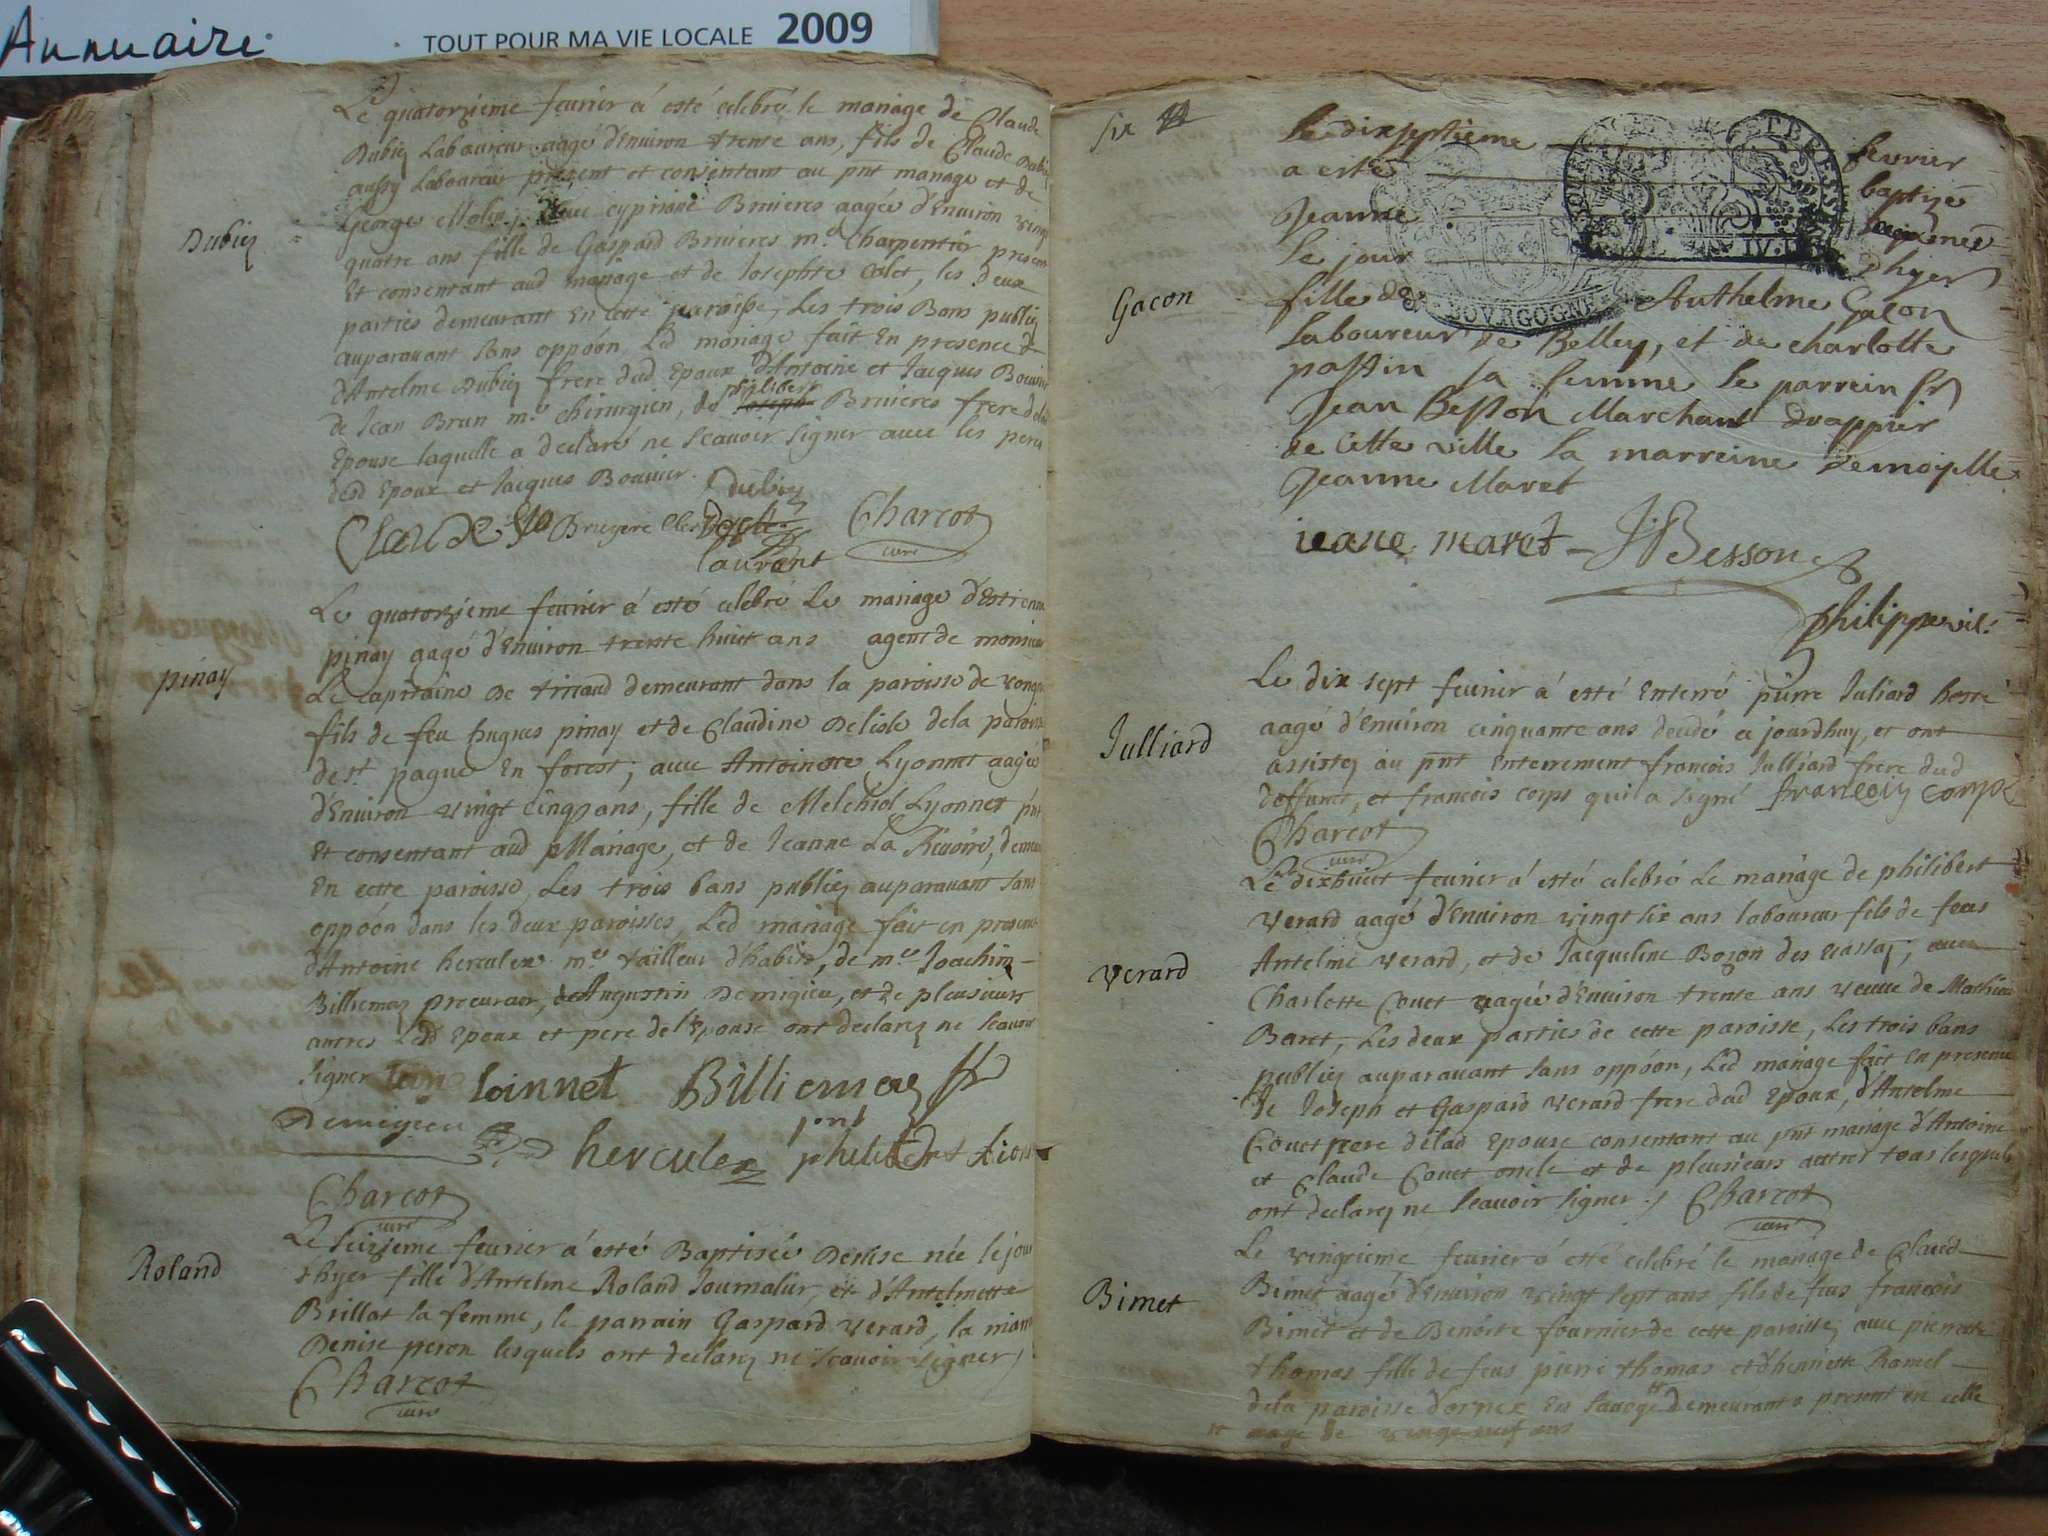 Annuaire
TOUT POUR MA VIE LOCALE 2009
Le quatorzieme feurier a esté celebré le mariage de Claude
Dubiez Laboureur aagé d'Enuiron trente ans, fils de Claude Dubiez
aussy Laboureur present et consentant au pnt mariage et de
George Molin, auec cypriane Bruieres aagée d'Enuiron vingt
Dubiez
quatre ans fille de Gaspard Bruieres me Charpentier present
Et consentant aud mariage et de Josephte Colet, les deux
parties demeurant En cette paroisse, Les trois Bans publiez
auparauant sans oppóon, Led mariage fait En presence
d'Antelme Dubiez frere dud Epoux d'Antoine et Jacques Bouuier
de Jean Brun me chirurgien, de philibert Bruieres frere de lad
Epouse laquelle a declaré ne scauoir signer auec les peres
desd Epoux et Jacques Bouuier.
Dubiez
Bruyere Charcot
curé
laurant
Le quatorzieme feurier a esté celebré Le mariage d'Estienne
pinay aagé d'Enuiron trente huict ans agent de monsieur
pinay
Le capitaine De tinaud demeurant dans la paroisse de
fils de feu hugues pinay et de Claudine Delisle de la paroisse
de st pague En forest; auec Antoinette Lyonnet aagée
d'Enuiron vingt Cinq ans, fille de Melchiol Lyonnet pnt
Et consentant aud Mariage, et de Jeanne La Riuoire, demeu
En cette paroisse, Les trois bans publiez auparauant sans
oppóon dans les deux paroisses, Led mariage fait en presence
d'Antoine herculex me tailleur d'habits, de me Joachim
Billiemaz procureur, de Augustin Demigieu, et de plusieurs
autres Led Epoux et pere de l'Epouse ont declarez ne scauoir
signer loinnet Billiemaz
Demigieu pnt
herculex philibert
Charcot
curé
Le seizieme feurier a esté Baptisée Denise née le jour
Roland
d'hyer fille d'Antelme Roland Journalier, et d'Antelmette
Brillat sa femme, le parrain Gaspard Verard, la marr
Denise peron lesquels ont declarez ne scauoir signer
Charcot
curé
six
Le dixseptieme feurier
a esté baptizé
Jeanne née
Le jour d'hyer
Gacon
fille de Anthelme Gacon
BOVRGOGNE
Laboureur de Belley, et de charlotte
passin sa femme le parrein sr
Jean Besson Marchant drappier
de Cette ville la marreine Demoyselle
Jeanne Maret
ieane maret J Besson
philippe vic.
Le dix sept feurier a esté Enterré pierre Juliard hoste
aagé d'Enuiron cinquante ans decedé ajourdhuy, et ont
Julliard
assistez au pnt Enterrement francois Julliard frere dud
deffunct, et francois corps qui a signé francoiy corps
Charcot
curé
Le dixhuict feurier a esté celebré Le mariage de philibert
Verard aagé d'Enuiron vingt six ans laboureur fils de feu
Verard
Antelme Verard, et de Jacqueline Bozon des ; auec
Charlotte Couet aagée d'Enuiron trente ans veuue de Mathieu
Baret, Les deux parties de cette paroisse, Les trois bans
publiez auparauant sans oppóon, Led mariage fait en presence
de Joseph et Gaspard Verard frere dud Epoux, d'Antelme
Couet pere de lad Epouse consentant au pnt mariage d'Antoine
et Claude Couet oncle et de plusieurs autres tous lesquels
ont declarez ne scauoir signer Charcot
curé
Le vingtieme feurier a esté celebré le mariage de Claude
Bimet
Bimet aagé d'Enuiron vingt sept ans fils de feu francois
Bimet et de Benoite fournier de cette paroisse, auec pierrette
thomas fille de feu pierre thomas et d'henriette Ramel
de la paroisse d'ornex En Sauoye demeurant a present en celle
aagé de vingt neuf ans